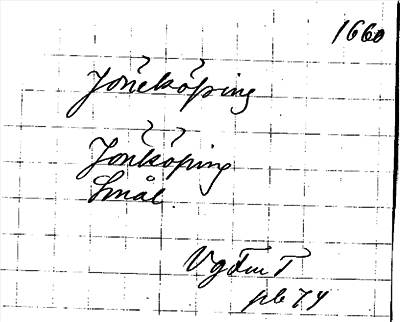 1660
Jöneköping
Jönköping
Smål.
VgFmT
pb 74